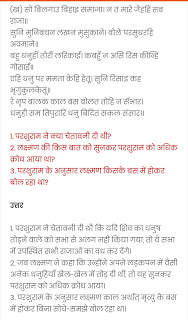 (ख) सो बिलगाउ बिहाइ समाजा। न त मारे जैहहिं सब
राजा॥
सुनि मुनिबचन लखन मुसुकाने। बोले परसुधरहि
अवमाने॥
बहु धनुही तोरी लरिकाईं। कबहुँ न असि रिस कीन्हि
गोसाईं॥
एहि धनु पर ममता केहि हेतू। सुनि रिसाइ कह
भृगुकुलकेतू॥
रे नृप बालक काल बस बोलत तोहि न सँभार।
धनुही सम तिपुरारि धनु बिदित सकल संसार॥
1. परशुराम ने क्या चेतावनी दी थी?
2. लक्ष्मण की किस बात को सुनकर परशुराम को अधिक
क्रोध आया था?
3. परशुराम के अनुसार लक्ष्मण किसके बस में होकर
बोल रहा था?
उत्तर
1. परशुराम ने चेतावनी दी थी कि यदि शिव का धनुष
तोड़ने वाले को सभा से अलग नहीं किया गया, तो वे सभा
में उपस्थित सभी राजाओं का वध कर देंगे।
2. जब लक्ष्मण ने कहा कि उन्होंने अपने लड़कपन में वैसी
अनेक धनुहियाँ खेल-खेल में तोड़ दी थीं, तो यह सुनकर
परशुराम को अधिक क्रोध आया।
3. परशुराम के अनुसार लक्ष्मण काल अर्थात् मृत्यु के बस
में होकर बिना सोचे-समझे बोल रहा था।